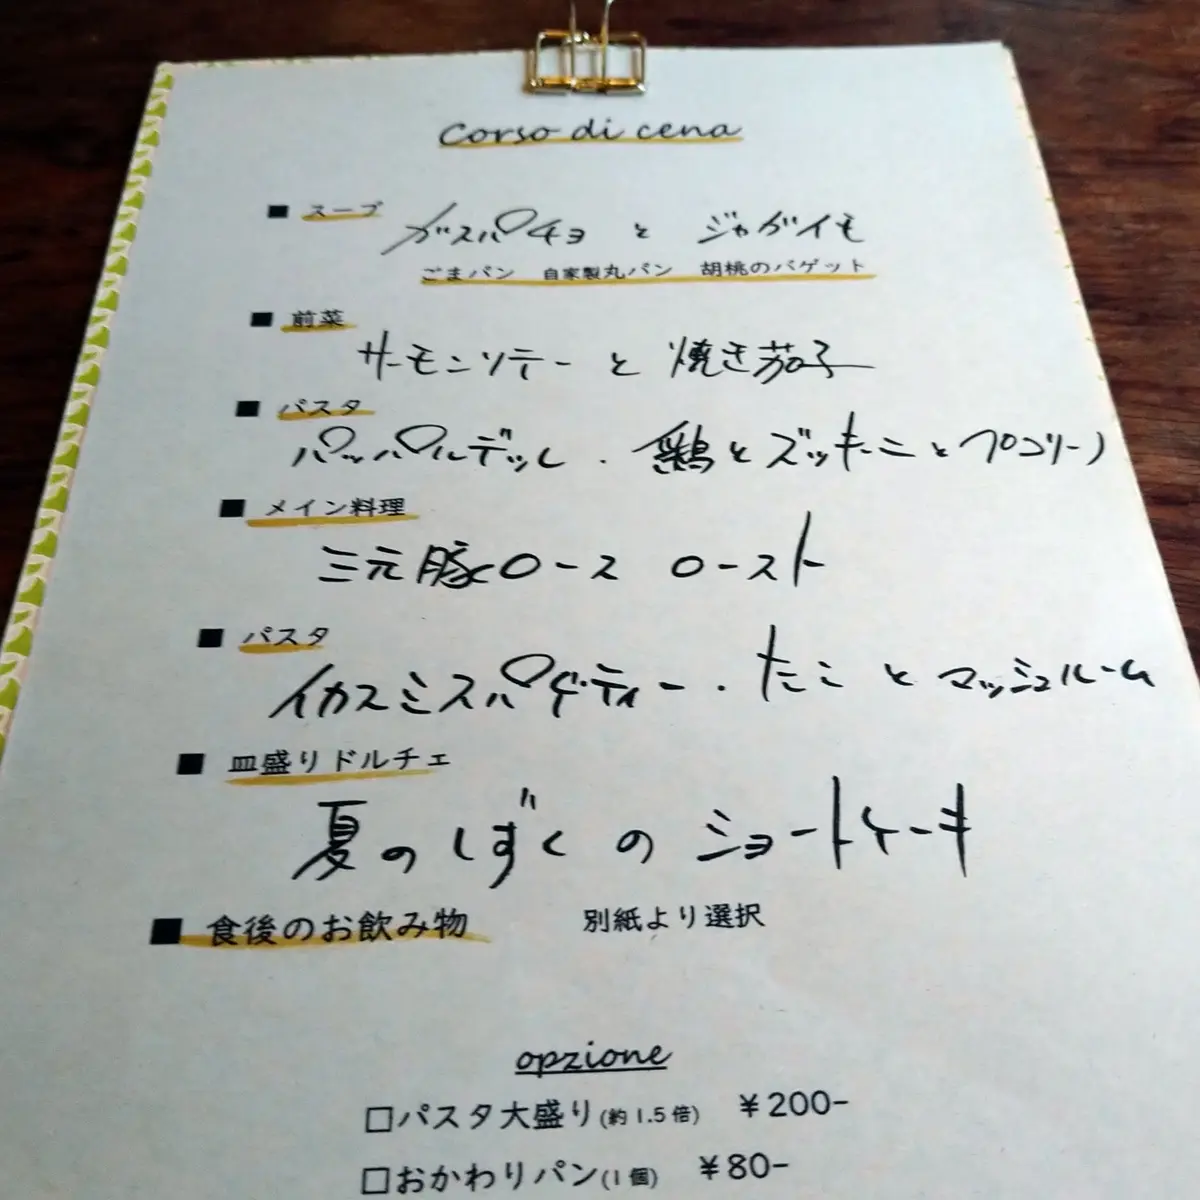 Corso di cena
■ スープ ガスパチョ と ジャガイモ
ごまパン 自家製丸パン 胡桃のバゲット
■ 前菜
サーモンソテー と 焼き茄子
■ パスタ
パッパルデッレ . 鶏とズッキーニと
■ メイン料理
三元豚ロース ロースト
■ パスタ
イカスミスパゲティー . たこ と マッシュルーム
■ 皿盛りドルチェ
夏のしずくのショートケーキ
■ 食後のお飲み物 別紙より選択
opzione
□パスタ大盛り(約1.5倍) ¥200-
□おかわりパン(1個) ¥80-